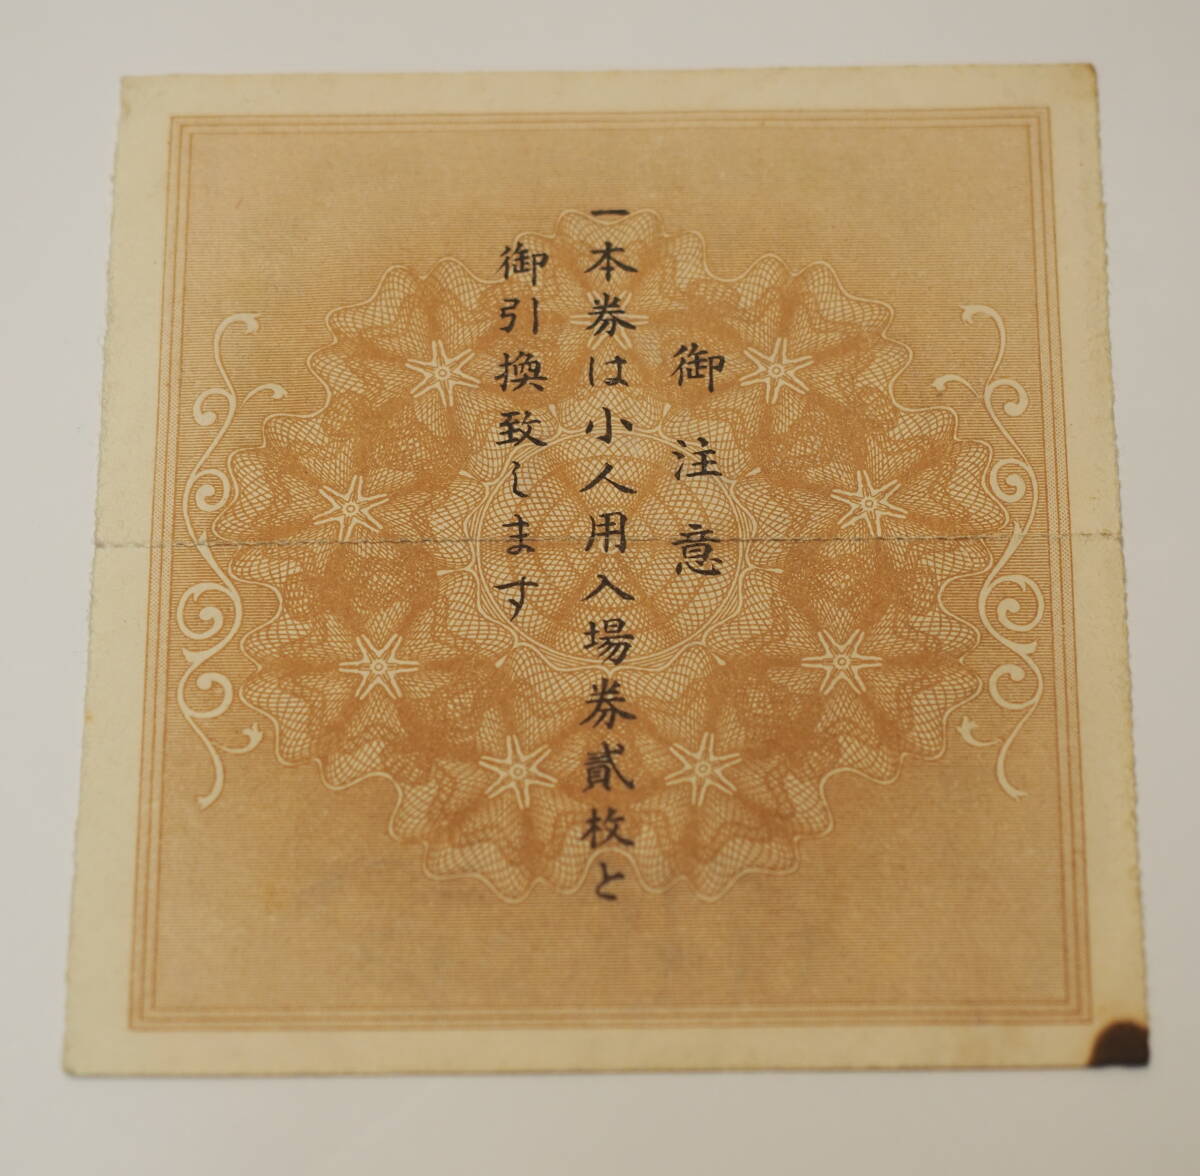 御注意
一本券は小人用入場券貳枚と
御引換致します